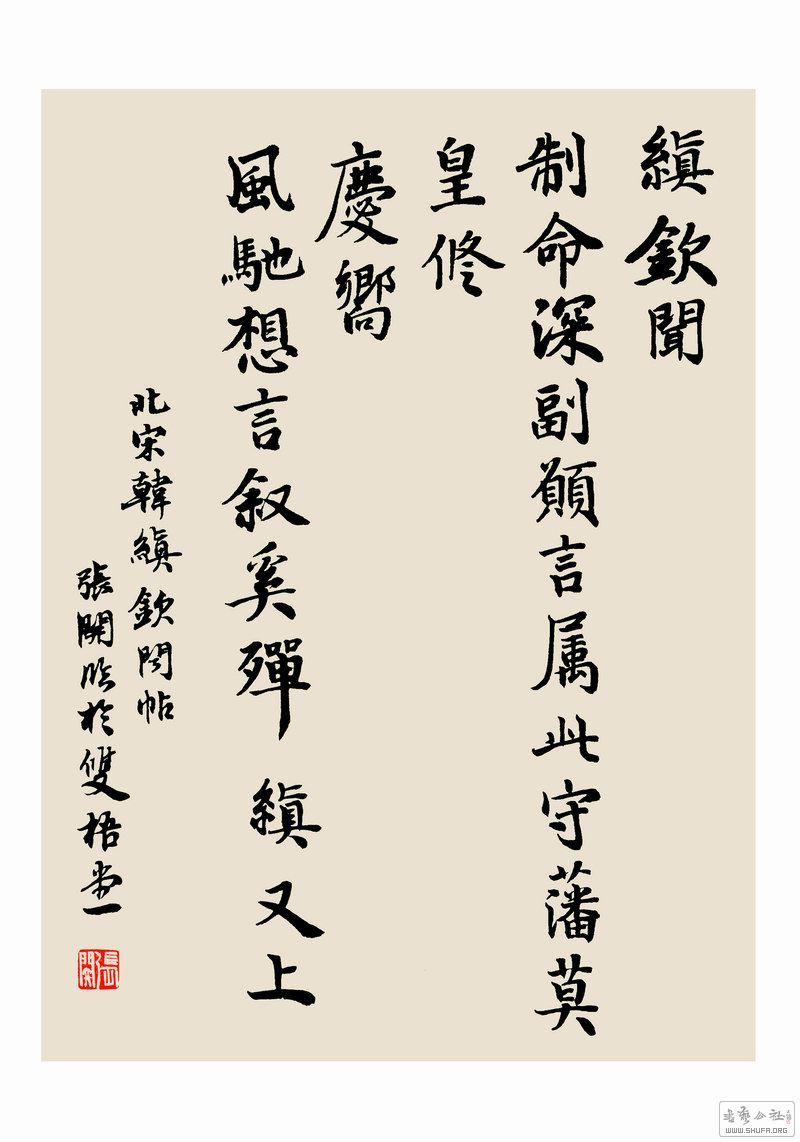 縝欽聞
制命深副願言属此守藩莫
皇修
慶嚮
風馳想言叙奚殫 縝又上
北宋韓縝欽聞帖
張開臨於雙梧堂
張開
書艺公社
WWW.SHUFA.ORG